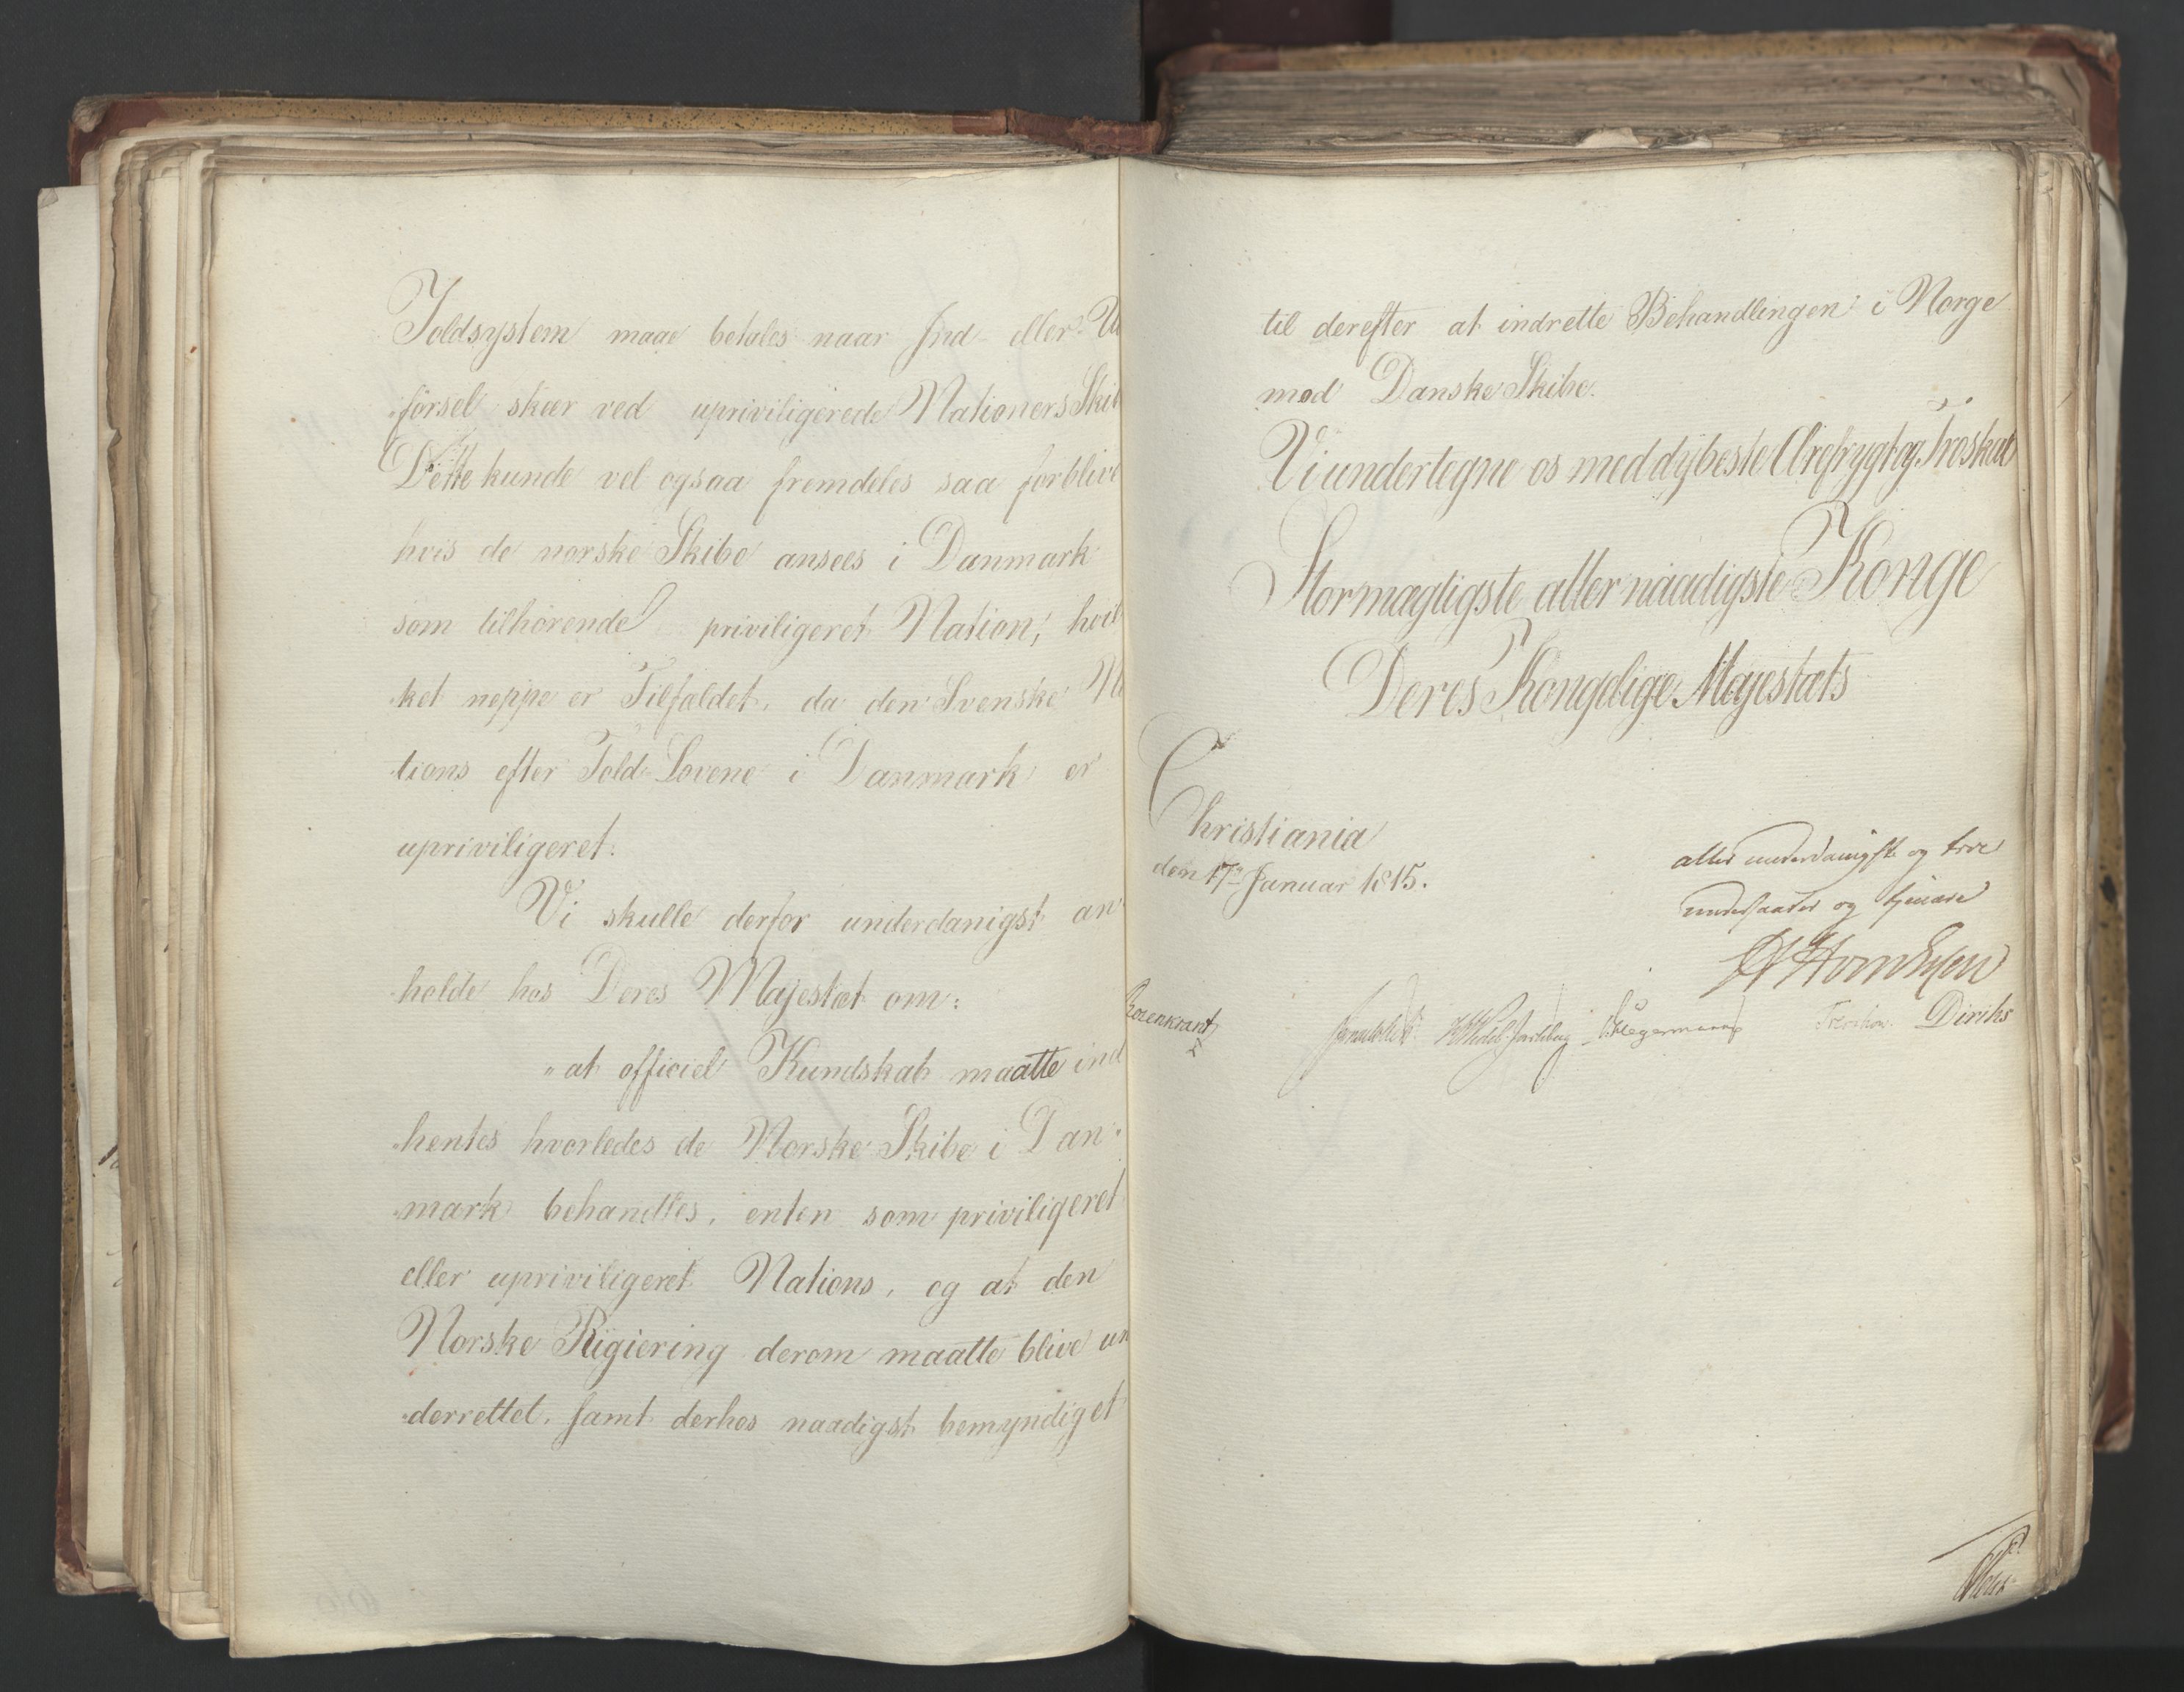 Toldsystem maae betales naar Ind- eller U
førsel skær ved upriviligerede Nationers Skib
Dette kunde vel ogsaa fremdeles saa forblive
hvis de norske Skibe ansees i Danmark
som tilhørende priviligeret Nation, hvil
ket neppe er Tilfældet, da den Svenske Na
tions efter Told-Lovene i Danmark er
upriviligeret.
Vi skulle derfor underdanigst an
holde hos Deres Majestæt om:
"at officiel Kundskab maatte ind
hentes hvorledes de Norske Skibe i Dan-
mark behandles, enten som priviligeret
eller upriviligeret Nations, og at den
Norske Regiering derom maatte blive un
derrettet, samt derhos naadigst bemyndiget
til derefter at indrette Behandlingen i Norge
mod Danske Skibe.
Vi undertegne os med dybeste Ærefrygt og Troskab
Stormægtigste allernaadigste Konge
Deres Kongelige Majestæts
Christiania
den 17de Januar 1815.
allerunderdanigste og troe
undersaatter og tjenere
Rosenkrantz Sommerhielm HWedel-Jarlsberg DHegermann Treschow Diriks